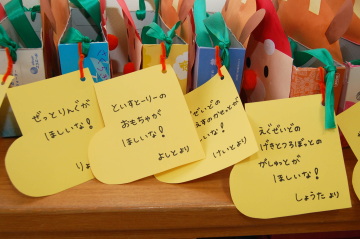 ぜっとりんぐが
ほしいな!
りょ
といすとーりーの
おもちゃが
ほしいな!
よしとより
ぜいどの
えすのがせっとが
ほしいな!
けいとより
えぐぜいどの
げきとつろぼっとの
がしゃっとが
ほしいな!
しょうたより